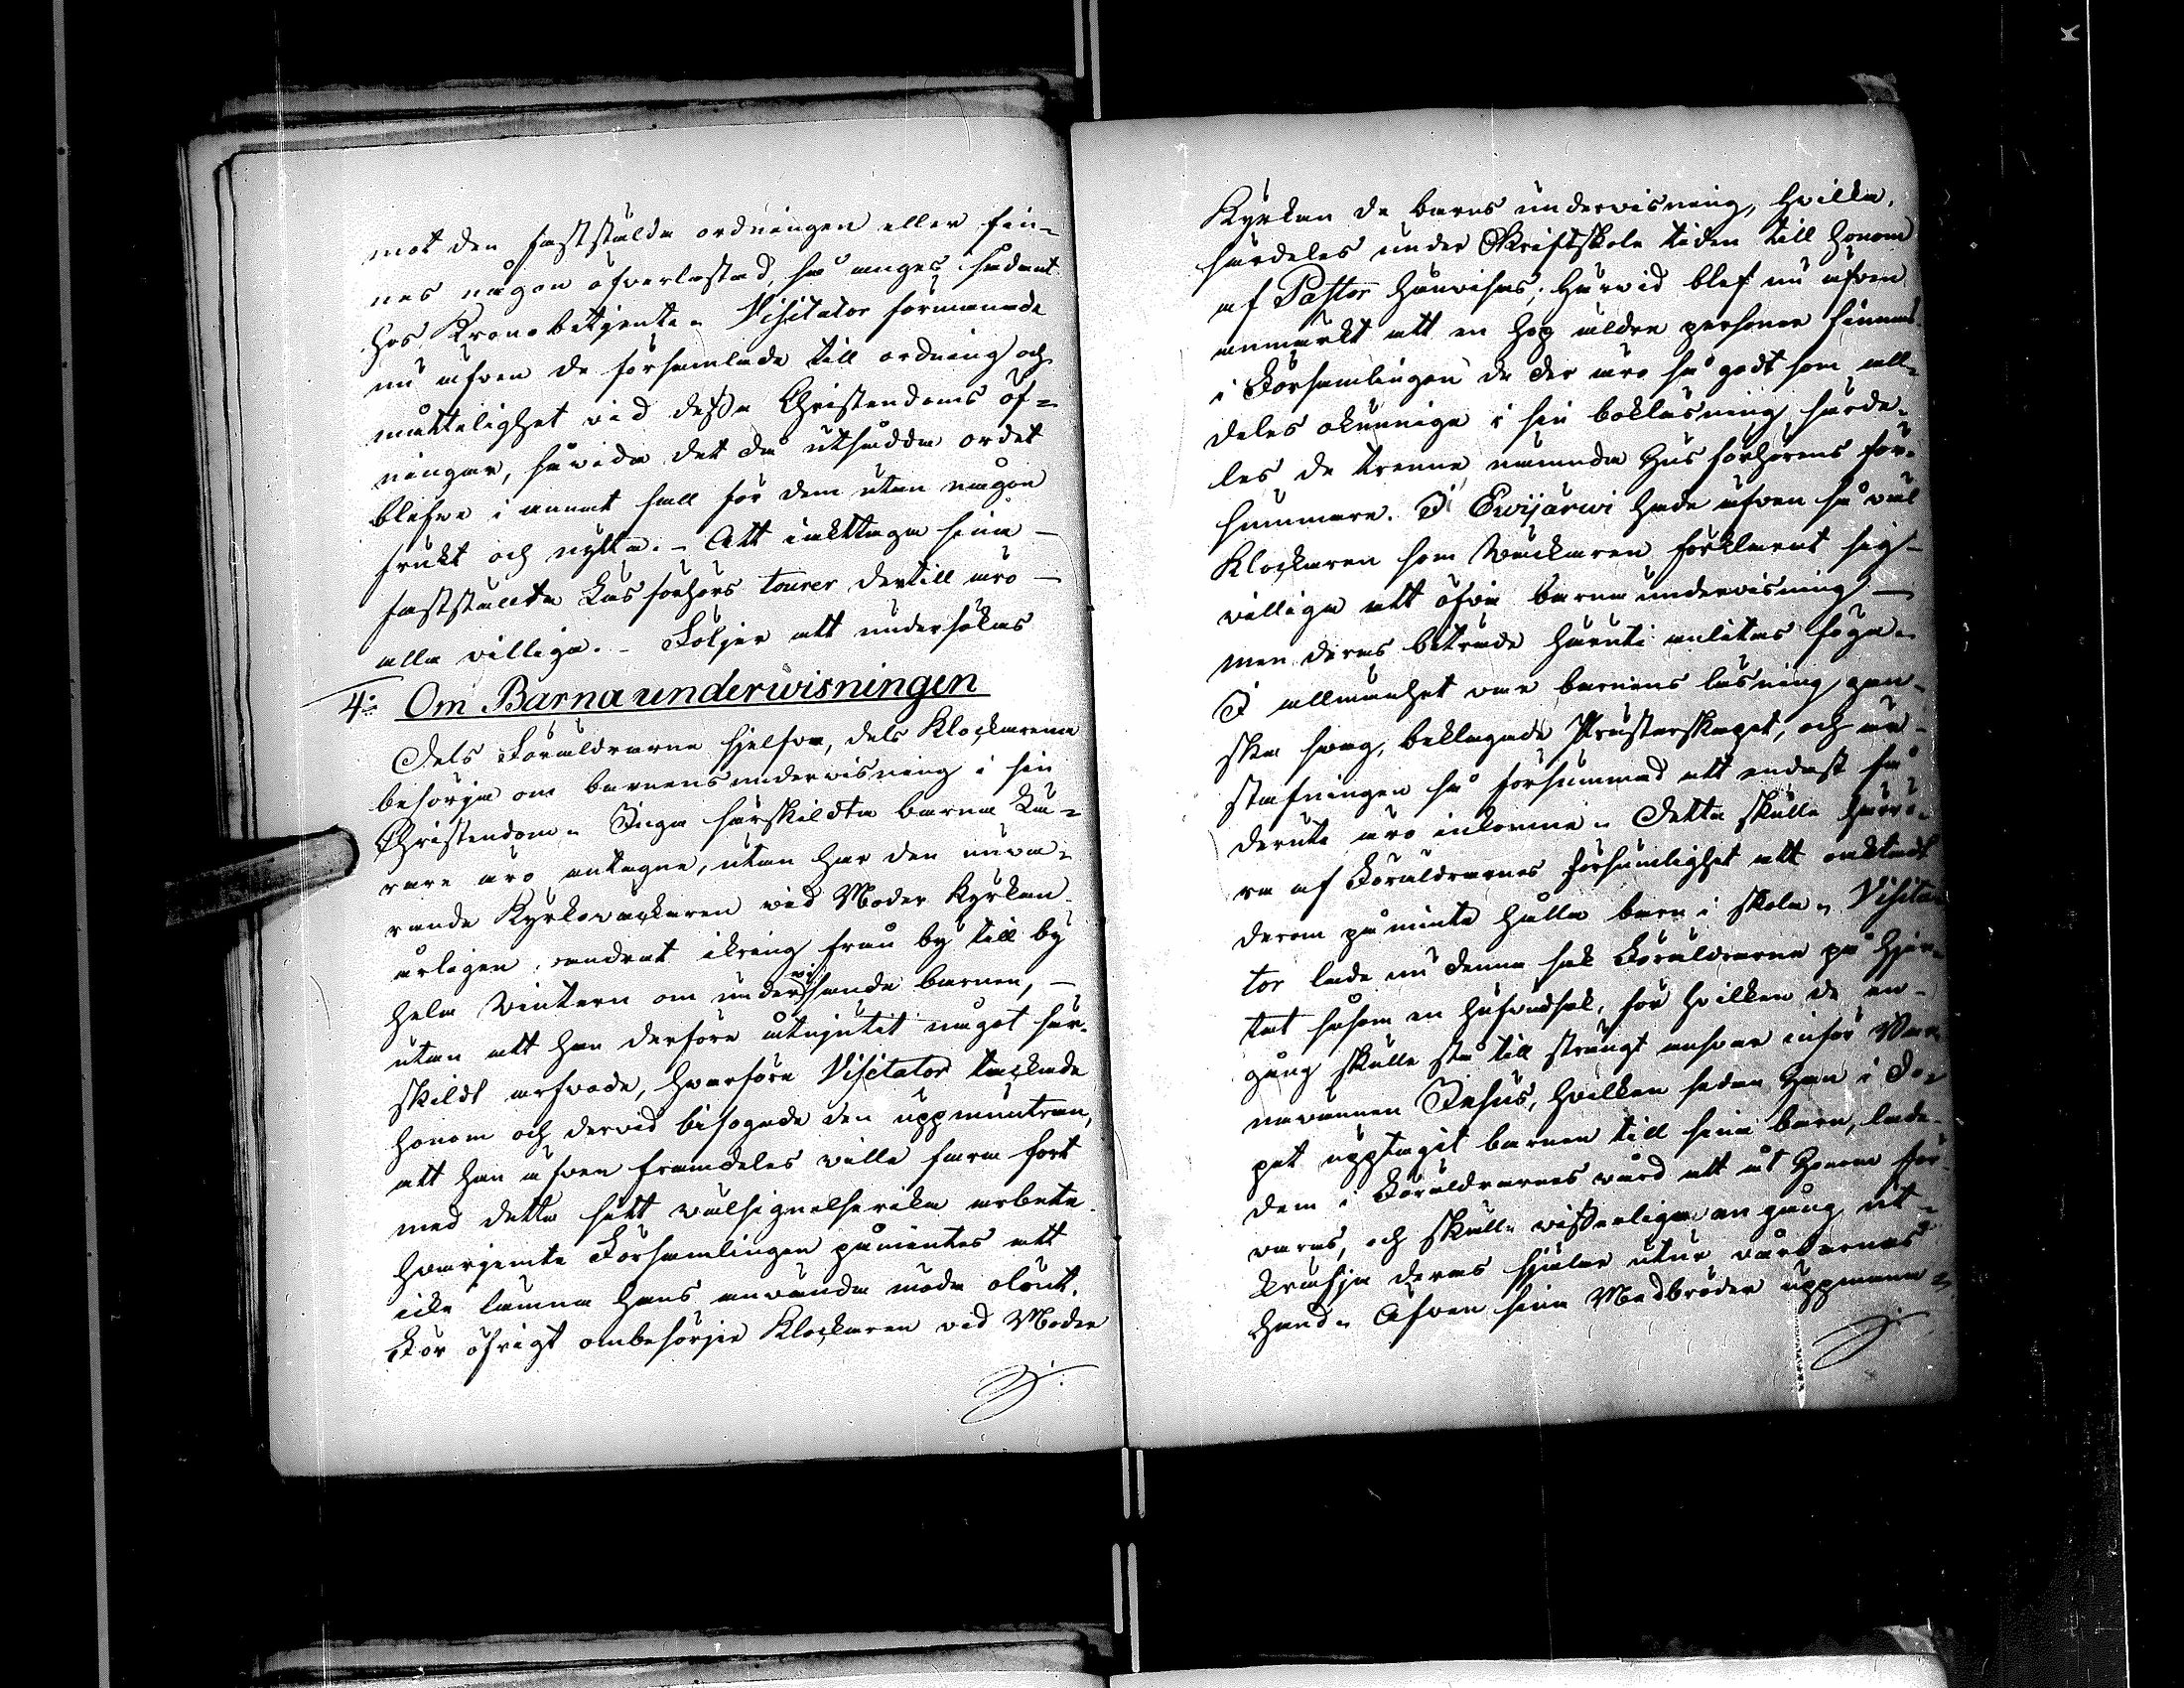 mot den fastställda ordningen eller fin-
nes någon öfverlastad, så anges sådant
hos Kronobetjente. Visitator förmanade
nu äfven de församlade till ordning och
måttelighet vid dessa Christendoms öf-
ningar, såvida det då utsådda ordet
blefve i annat fall för dem utan någon
frukt och nytta. - Att iakttaga sina -
fastställda Läsförhörs tourer dertill äro -
alla villiga. - Följer att undersökas
4:o Om Barna underwisningen
Dels Föräldrarne sjelfva, dels Klockarena
besörja om barnens undervisning i sin
Christendom. Inga särskildta barna Lä-
rare äro antagne, utan har den nuva-
rande Kyrkoväckaren vid Moder Kyrkan
årligen vandrat ikring från by till by
hela Vintern om undervisande barnen, -
utan att han derföre åtnjutit något sär-
skildt arfvode, hvarföre Visitator tackade
honom och dervid bifogade den uppmuntran,
att han äfven framdeles ville fara fort
med detta sitt välsignelserika arbete.
Hvarjemte Församlingen påmintes att
icke lämna hans använda möda olönt.
För öfrigt ombesörjer Klockaren vid Moder
Kyrkan de barns undervisning, hvilka,
särdeles under Skriftskole tiden till honom
af Pastor hänvisas; härvid blef nu äfven
anmärkt att en hop äldre personer finnas
i Församlingen de der äro så godt som all-
deles okunniga i sin bokläsning särde-
les de trenne nämnda Husförhörens för-
summare. I Ewijärwi hade äfven så väl
Klockaren som Väckaren förklarat sig -
villiga att öfva barna undervisning -
men deras biträde häruti anlitas föga.
I allmänhet var barnens läsning gan-
ska svag, beklagade Prästerskapet, och är
stafningen så försummad att endast få
deruti äro inkomne. Detta skulle härrö-
ra af Föräldrarnes försumlighet att oaktadt
derom påminte hålla barn i skola. Visita-
tor lade nu denna sak Föräldrarne på hjer-
tat såsom en hufvudsak, för hvilken de en-
gång skulle stå till strängt ansvar inför Bar-
navännen Jesus, hvilken sedan Han i Do-
pet upptagit barnen till sina barn, lade
dem i Föräldrarnes vård att åt Honom för-
varas, och skulle visserligen en gång ut-
kräfja deras själar utur vårdarnas
hand. Äfven sina Medbröder uppmana-